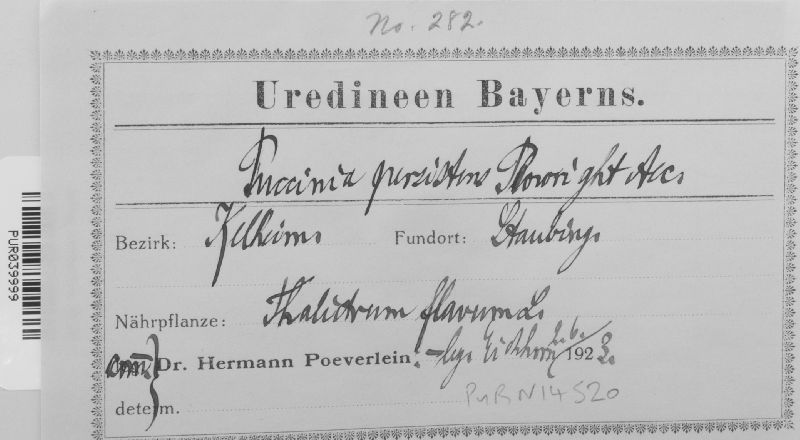 No. 282.
Uredineen Bayerns.
Puccinia persistens Plowright Aec.
Bezirk: Kelheim. Fundort: Staubing.
Nährpflanze: Thalictrum flavum L.
com. Dr. Hermann Poeverlein. – leg. 2.6. 1923.
determ.
PUR N14520
PUR039999